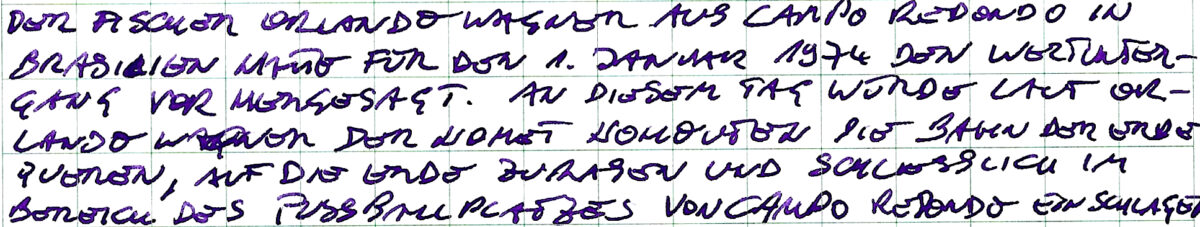 DER FISCHER ORLANDO WAGNER AUS CAMPO REDONDO IN
BRASILIEN HATTE FÜR DEN 1. JANUAR 1974 DEN WELTUNTER-
GANG VORHERGESAGT. AN DIESEM TAG WÜRDE LAUT OR-
LANDO WAGNER DER KOMET KOHOUTEK DIE BAHN DER ERDE
QUEREN, AUF DIE ERDE ZURASEN UND SCHLIESSLICH IM
BEREICH DES FUSSBALLPLATZES VON CAMPO REDONDO EINSCHLAGEN